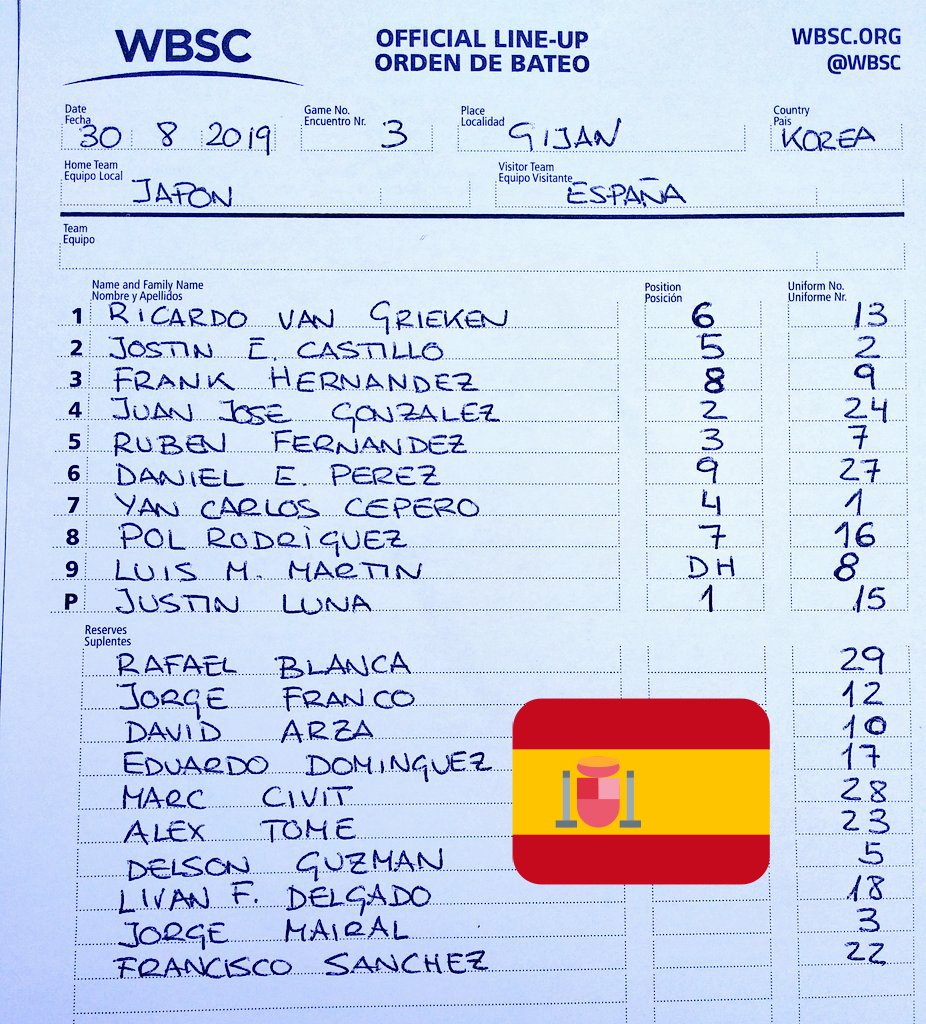 WBSC OFFICIAL LINE-UP WBSC.ORG
ORDEN DE BATEO @WBSC
Date Game No. Place Country
Fecha Encuentro Nr. Localidad Pais
30 8 2019 3 GIJAN KOREA
Home Team Visitor Team
Equipo Local Equipo Visitante
JAPON ESPAÑA
Team
Equipo
Name and Family Name Position Uniform No.
Nombre y Apellidos Posición Uniforme Nr.
1 RICARDO VAN GRIEKEN 6 13
2 JOSTIN E. CASTILLO 5 2
3 FRANK HERNANDEZ 8 9
4 JUAN JOSE GONZALEZ 2 24
5 RUBEN FERNANDEZ 3 7
6 DANIEL E. PEREZ 9 27
7 YAN CARLOS CEPERO 4 1
8 POL RODRIGUEZ 7 16
9 LUIS M. MARTIN DH 8
P JUSTIN LUNA 1 15
Reserves
Suplentes
RAFAEL BLANCA 29
JORGE FRANCO 12
DAVID ARZA 10
EDUARDO DOMINGUEZ 17
MARC CIVIT 28
ALEX TOME 23
DELSON GUZMAN 5
LIVAN F. DELGADO 18
JORGE MAIRAL 3
FRANCISCO SANCHEZ 22